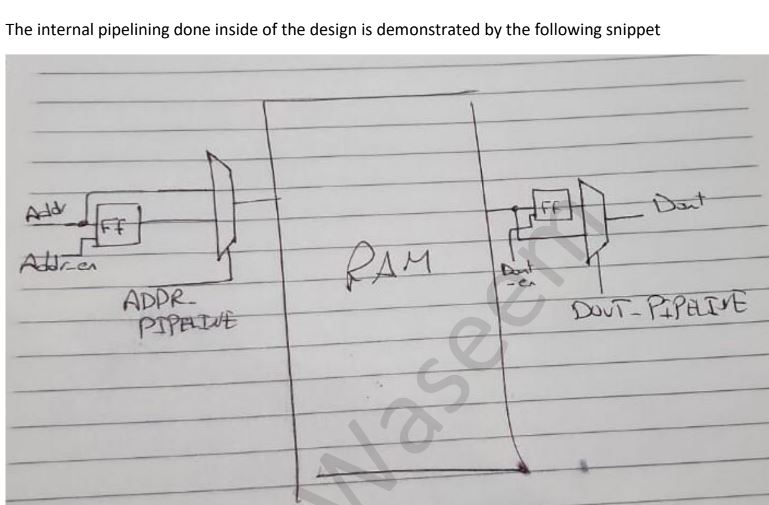 The internal pipelining done inside of the design is demonstrated by the following snippet
Addr
FF
Addr-en
ADDR-
PIPELINE
RAM
FF
Dout
Dout
-en
DOUT-PIPELINE
Waseem